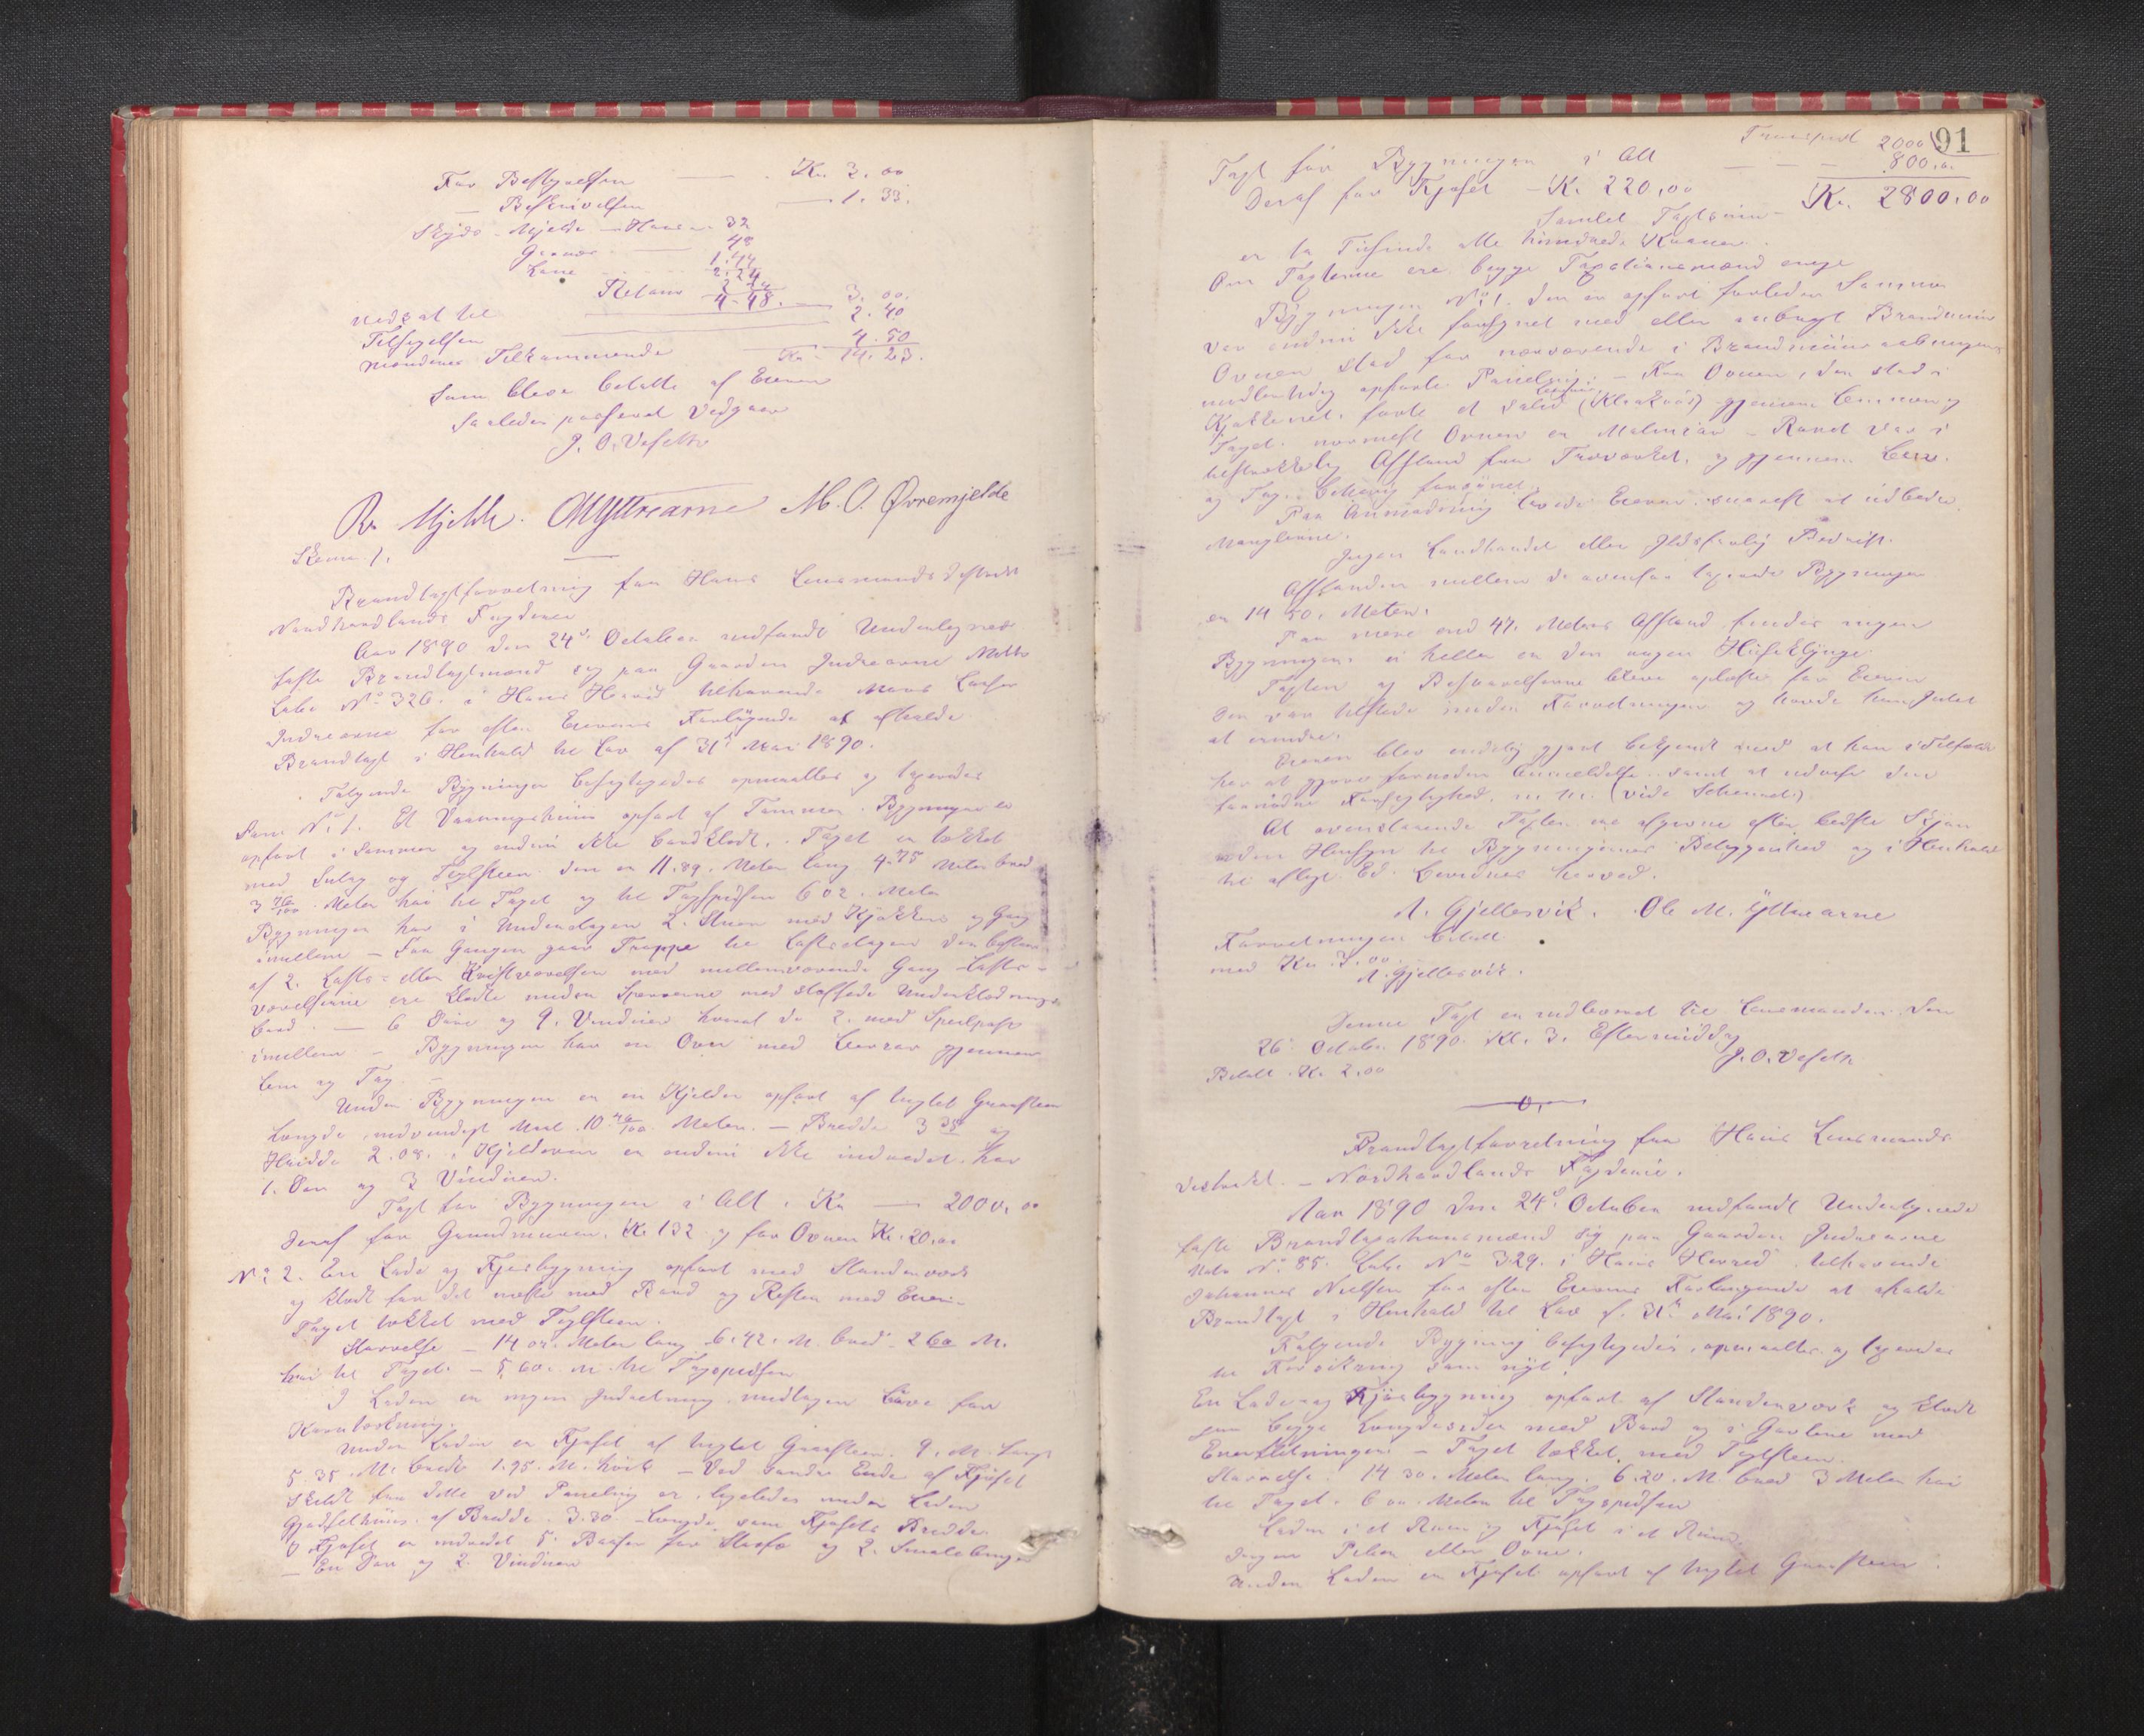 For Bestyrelsen — Kr. 3.00
— Beskrivelsen — 1.33.
Skyds Mjelde — Haus 32
48
1.44
2.24
Retour 2.24
4.48. — 3.00.
nedsat til 2.40
Tilsigelsen 4.50
Mændenes Tilkommende Kr. 14.23.
Som bleve betalte af Eieren
Saaledes passeret Vedgaar
J. O. Veseth
R. Mjelde. O M Yttrearne M. O. Øvremjelde
Skema 1.
Brandtaxtforretning fra Haus Lensmandsdistrikt
Nordhordlands Fogderie
Aar 1890 den 24de October indfandt Undertegnede
faste Brandtaxtmænd sig paa Gaarden Indrearne Matr
Løbe No 326. i Haus Herred tilhørende Mons Larsen
Indrearne for efter Eierens Forlangende at afholde
Brandtaxt i Henhold til Lov af 31te Mai 1890.
Følgende Bygninger besigtigedes opmaaltes og taxeredes
som No 1. Et Vaaningshuus opført af Tømmer. Bygningen er
opført i Sommer og endnu ikke bordklædt. Taget er tækket
med Sutag og Teglsteen. den er 11.89. Meter lang 4.75 Meter bred
3 76/100 Meter høi til Taget og til Tagspidsen 602. Meter
Bygningen har i Underetagen 2. Stuer med Kjøkken og Gang
imellem — Fra Gangen gaar Trappe til Loftsetagen der bestaar
af 2. Lofts- eller Kvistværelser med mellemværende Gang Lofts-
værelserne ere klædte under Sperrerne med støffede Underklædnings
bord. — 6 Døre og 9. Vinduer hvoraf de 2. med Speilpost
imellem — Bygningen har en Ovn med Leerrør gjennem
Lem og Tag. —
Under Bygningen er en Kjelder opført af huglet Graasteen
Længde indvendigt Maal. 10 46/100. Meter. — Bredde 3 35 og
Høide 2.08. i Kjelderen er endnu ikke indredet. har
1. Dør og 3 Vinduer.
Taxt for Bygningen i Alt. Kr — 2000.00
Deraf for Grundmuren. Kr 132 og for Ovnen Kr. 20.00
No 2. En Lade og Fjøsbygning opført med Standerværk
og klædt for det meste med Bord og Resten med Ener.
Taget tækket med Teglsteen.
Størrelse — 14 02. Meter lang 6.42. M. bred 260 M.
høi til Taget. — 5,60. M. til Tagspidsen
I Laden er ingen Indretning undtagen Løve for
Korntorkning.
Under Laden er Fjøset af huglet Graasteen. 9. M. lang
5.35. M. bredt 1.95. M. høit — Ved søndre Ende af Fjøset
skildt fra dette ved Paneling er ligeledes under Laden
Gjødselhuus. af Bredde. 3.30. — Længde som Fjøsets Bredde.
I Fjøset er indredet 5. Baaser for Storfæ og 2. Smalebinger
— En Dør og 2. Vinduer
Transport 2000
91
Taxt for Bygningen i Alt — — — 800.00.
Deraf for Fjøset — Kr 220,00 Kr. 2800.00
Samlet Taxtsum
er to Tusinde otte hundrede Kroner.
Om Taxterne ere begge Taxtationsmænd enige
Bygningen No 1. den er opført forleden Sommer
var endnu ikke forsynet med eller indlagt Brandmuur
Ovnen stod for nærværende i Brandmuursaabningen
midlertidig opførte Paneling. — Fra Ovnen, den stod i
Kjøkkenet. førte et solid Leerrør (Klinkrør) gjennem Lemmen og
Taget. nærmest Ovnen en Malmrør — Røret var i
tilstrækkelig Afstand fra Træværket, og gjennem Lem.
og Tag. behørig forsynet.
Paa Anmodning lovede Eieren snarest at udbedre
Manglerne.
Ingen Landhandel eller Ildsfarlig Bedrift.
Afstanden mellem de ovenfor taxerede Bygninger
er 14 50. Meter.
Paa mere end 47. Meters Afstand findes ingen
Bygninger, ei heller er der nogen Huseklynge.
Taxten og Besvarelserne bleve oplæste for Eieren
der var tilstede under Forretningen og havde han Intet
at erindre.
Eieren blev endelig gjort bekjendt med at han i Tilfælde
har at gjøre fornøden Anmeldelse. samt at udvise den
fornødne Forsigtighed. m. m. (vide Schemaet.)
At ovenstaaende Taxter ere afgivne efter bedste Skjøn
uden Hensyn til Bygningernes Beliggenhed og i Henhold
til aflagt Ed. bevidnes herved.
A. Gjellesvik. Ole M. Yttrearne
Forretningen betalt
med Kr. 3.00
A. Gjellesvik.
Denne Taxt er indleveret til Lensmanden. den
26de October 1890. Kl. 3. Eftermiddag
J. O. Veseth
Betalt Kr. 2.00
Brandtaxtforretning fra Haus Lensmands
distrikt. — Nordhordlands Fogderie.
Aar 1890 den 24de October indfandt Undertegnede
faste Brandtaxtationsmænd sig paa Gaarden Indrearne
Matr No. 85. Løbe No 329. i Haus Herred tilhørende
Johannes Nielsen for efter Eierens Forlangende at afholde
Brandtaxt i Henhold til Lov af 31te Mai 1890.
Følgende Bygning besigtigedes, opmaaltes og taxeredes
til Forsikring som nyt.
En Lade og Fjøsbygning opført af Standerværk og klædt
paa begge Længdesider med Bord og i Gavlene med
Enerklædningen — Taget tækket med Teglsteen.
Størrelse. 14 30. Meter lang. 6.20. M. bred 3 Meter høi
til Taget. 6 00. Meter til Tagspidsen
Laden i et Rum og Fjøset i et Rum.
Ingen Piben eller Ovne.
Under Laden er Fjøset opført af huglet Graasteen.